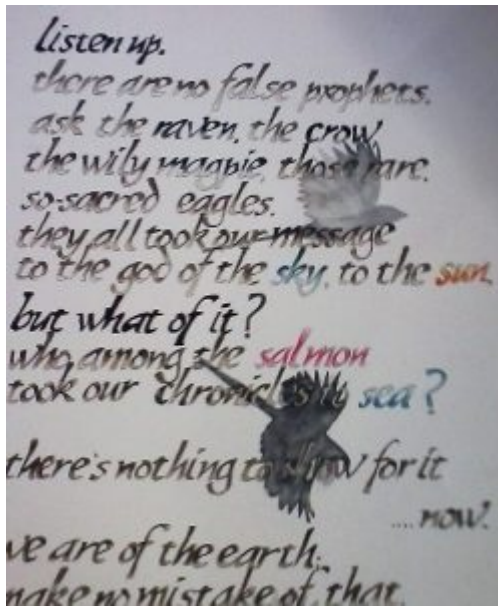 listen up.
there are no false prophets.
ask the raven, the crow,
the wily magpie, those rare,
so-sacred eagles.
they all took our message
to the god of the sky, to the sun.
but what of it?
who among the salmon
took our chronicles to sea?
there's nothing to show for it
....now.
we are of the earth,
make no mistake of that.